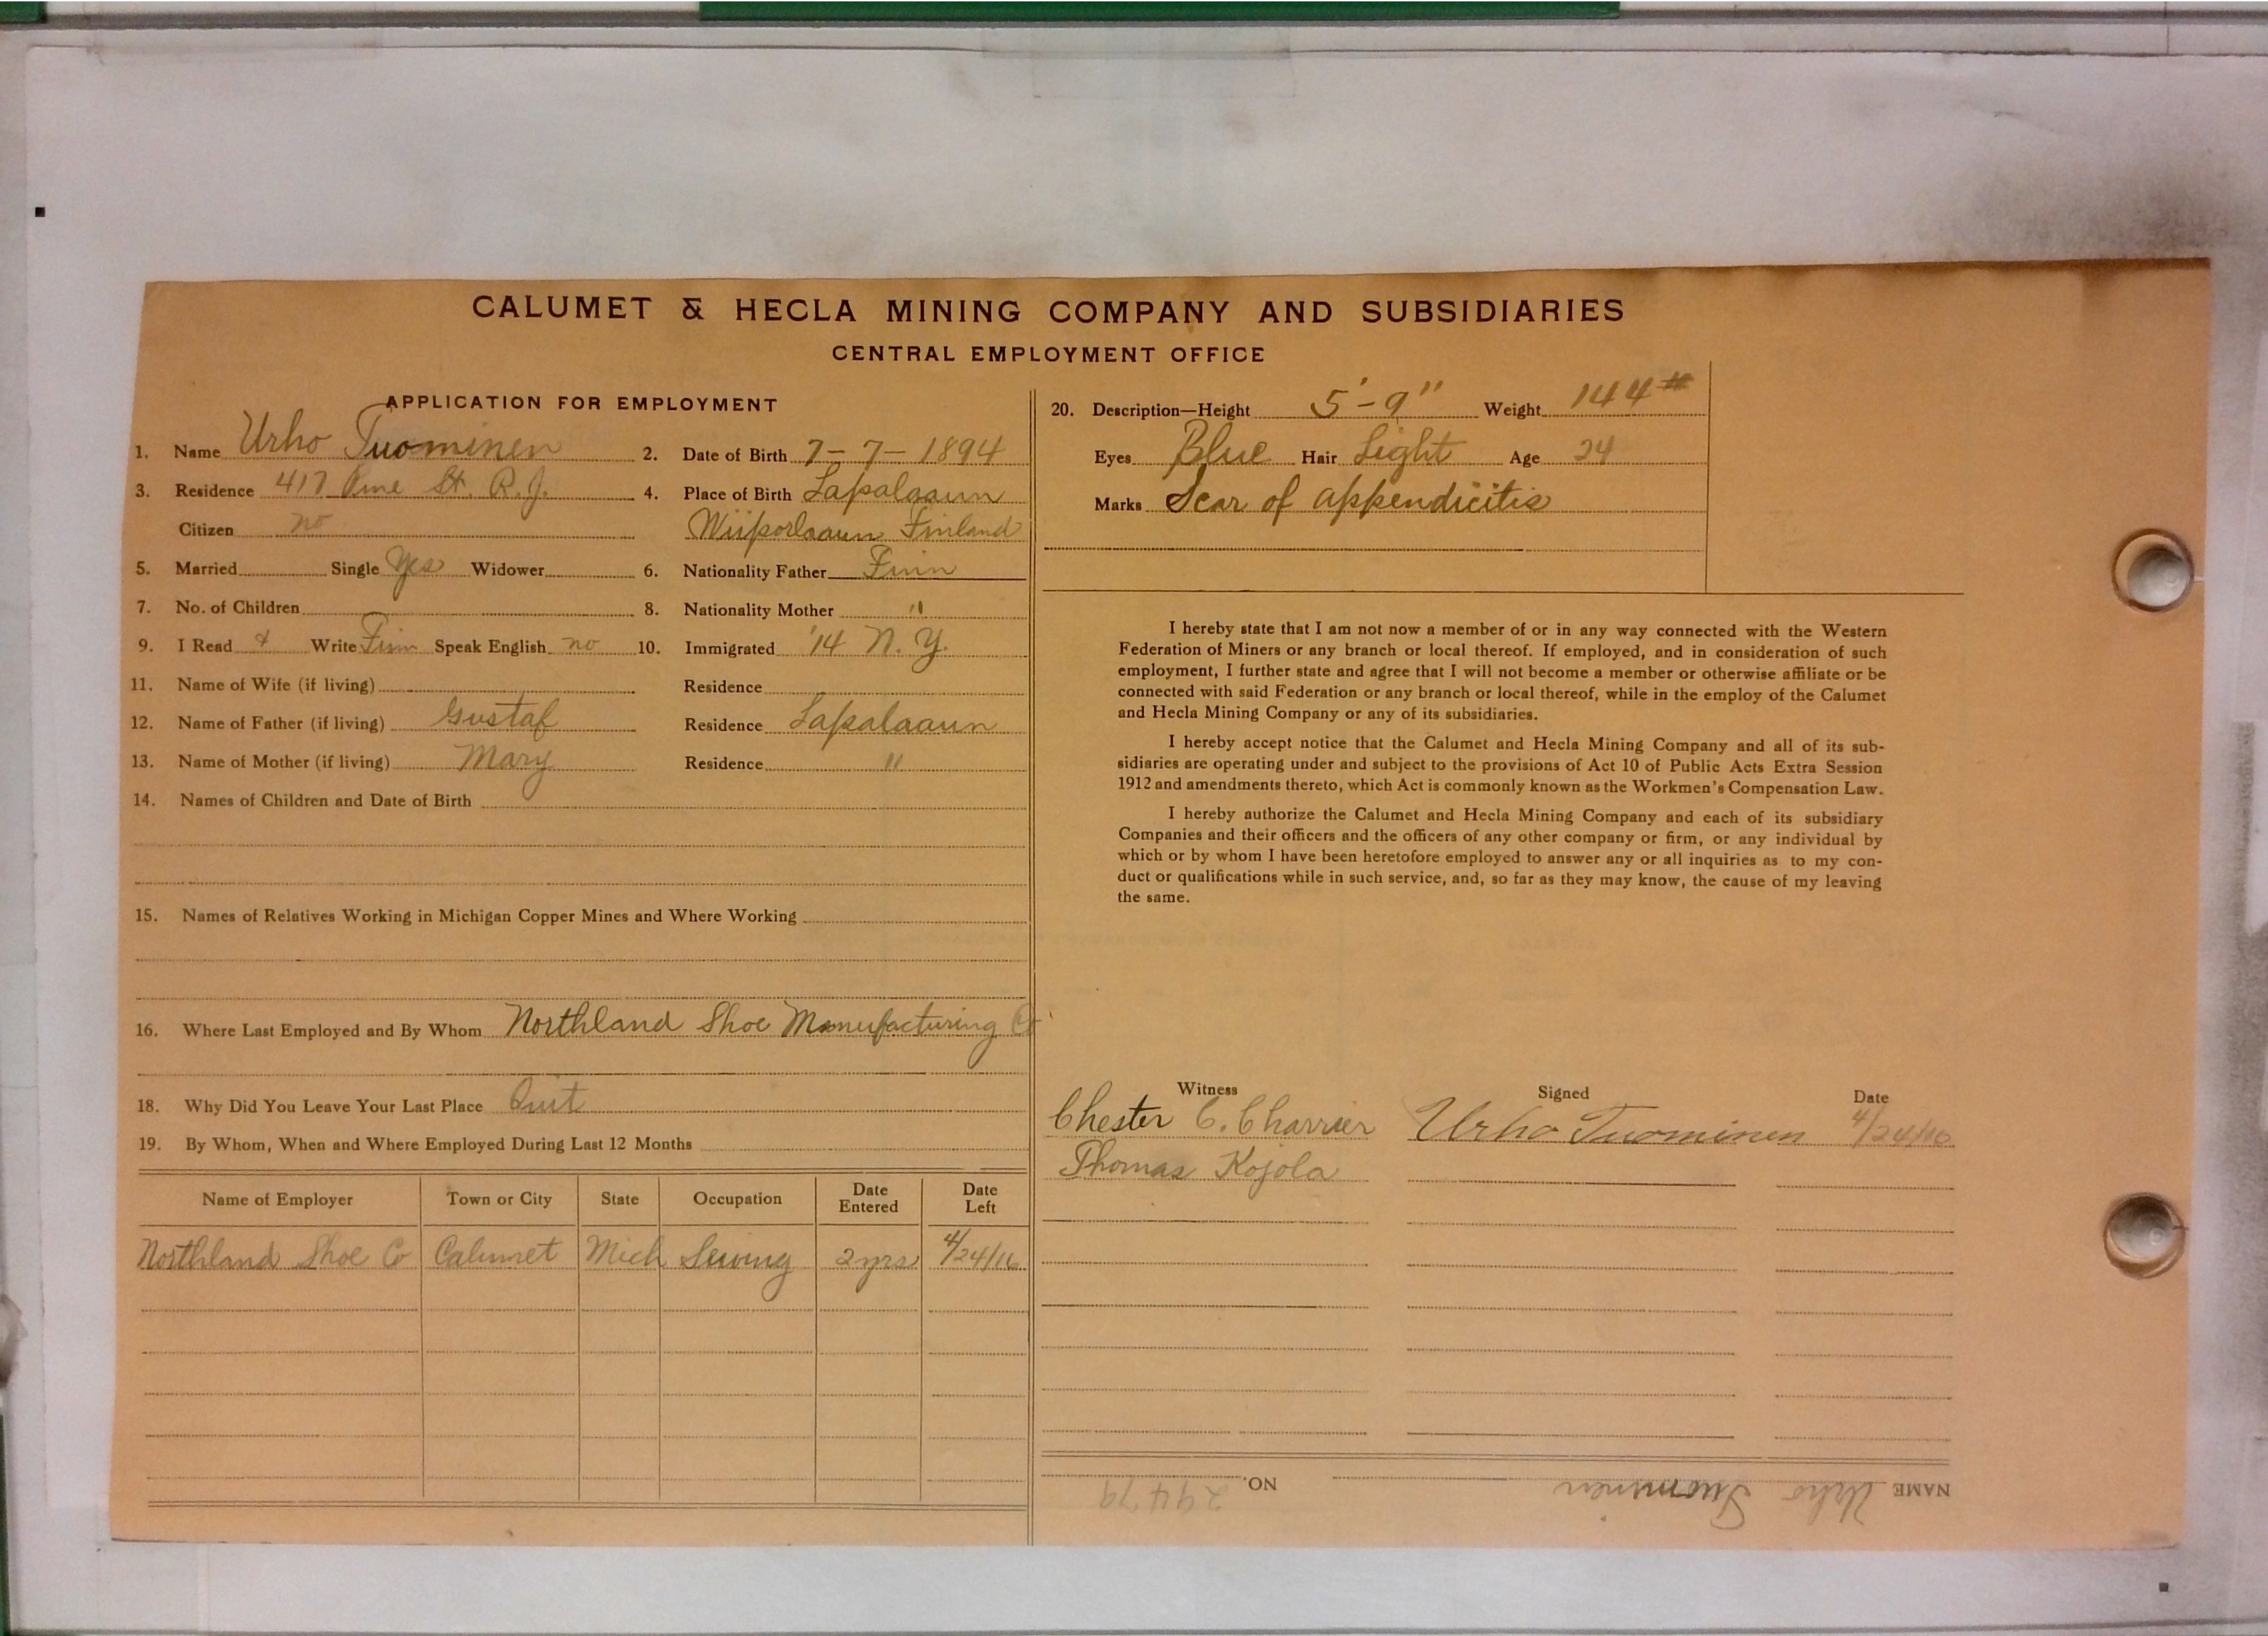 CALUMET & HECLA MINING COMPANY AND SUBSIDIARIES
CENTRAL EMPLOYMENT OFFICE
APPLICATION FOR EMPLOYMENT
1. Name Urho Tuominen 2. Date of Birth 7-7-1894
3. Residence 417 Pine St. R.J. 4. Place of Birth Lapalaaun
Citizen no Wiiporlaaun Finland
5. Married Single Yes Widower 6. Nationality Father Finn
7. No. of Children 8. Nationality Mother "
9. I Read & Write Finn Speak English no 10. Immigrated '14 N.Y.
11. Name of Wife (if living) Residence
12. Name of Father (if living) Gustaf Residence Lapalaaun
13. Name of Mother (if living) Mary Residence "
14. Names of Children and Date of Birth
15. Names of Relatives Working in Michigan Copper Mines and Where Working
16. Where Last Employed and By Whom Northland Shoe Manufacturing Co
18. Why Did You Leave Your Last Place Quit
19. By Whom, When and Where Employed During Last 12 Months
Name of Employer Town or City State Occupation Date Entered Date Left
Northland Shoe Co Calumet Mich Sewing 2 yrs 4/24/16
20. Description—Height 5'-9" Weight 144#
Eyes Blue Hair Light Age 24
Marks Scar of appendicitis
I hereby state that I am not now a member of or in any way connected with the Western
Federation of Miners or any branch or local thereof. If employed, and in consideration of such
employment, I further state and agree that I will not become a member or otherwise affiliate or be
connected with said Federation or any branch or local thereof, while in the employ of the Calumet
and Hecla Mining Company or any of its subsidiaries.
I hereby accept notice that the Calumet and Hecla Mining Company and all of its sub-
sidiaries are operating under and subject to the provisions of Act 10 of Public Acts Extra Session
1912 and amendments thereto, which Act is commonly known as the Workmen's Compensation Law.
I hereby authorize the Calumet and Hecla Mining Company and each of its subsidiary
Companies and their officers and the officers of any other company or firm, or any individual by
which or by whom I have been heretofore employed to answer any or all inquiries as to my con-
duct or qualifications while in such service, and, so far as they may know, the cause of my leaving
the same.
Witness Signed Date
Chester C. Charrier Urho Tuominen 4/24/16
Thomas Kojola
NAME Urho Tuominen NO. 29479